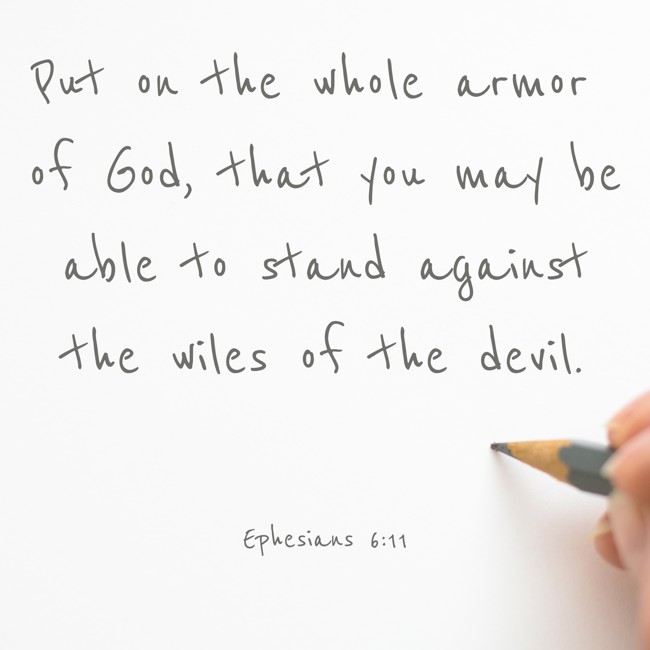 Put on the whole armor
of God, that you may be
able to stand against
the wiles of the devil.
Ephesians 6:11